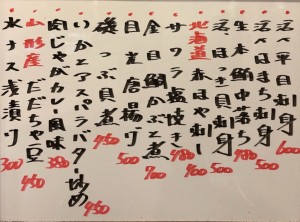 活〆平目刺身 600
活〆はまち刺身 500
生本鮪中落ち 480
活つぶ刺身 500
北海道赤ほや刺し 480
サクラ塩焼き 400
金目鯛かぶと煮 700
目光唐揚げ 500
磯つぶ煮 450
いかとアスパラバター炒め 450
肉じゃがカレー風味 380
山形産だだちゃ豆 450
水ナス浅漬け 300